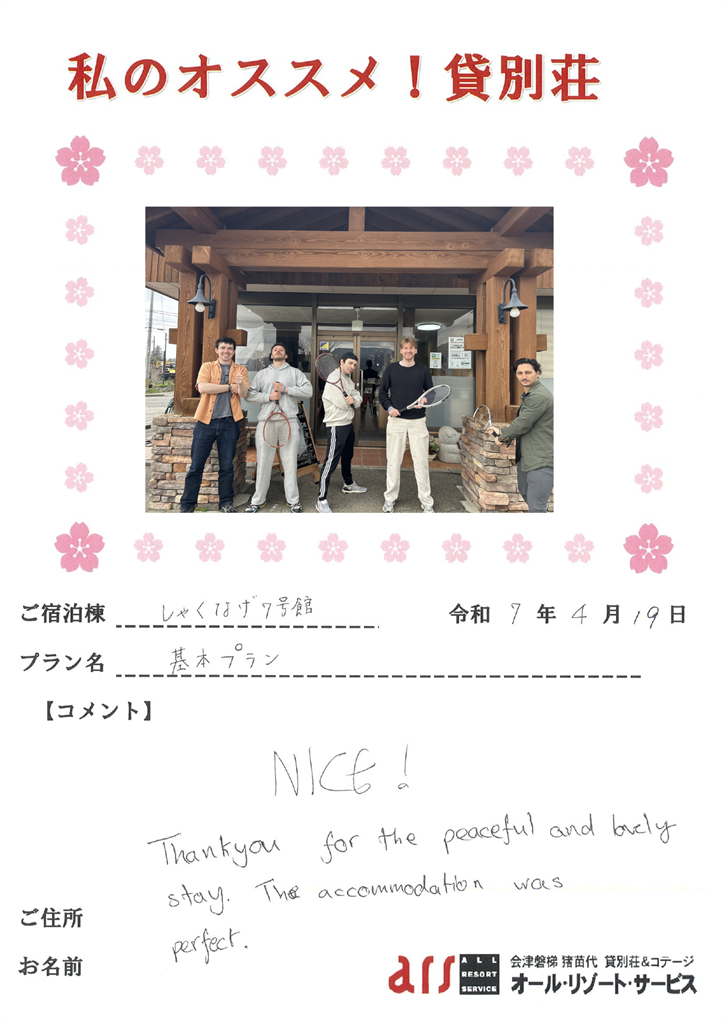 私のオススメ！貸別荘
ご宿泊棟 しゃくなげ7号館 令和 7 年 4 月 19 日
プラン名 基本プラン
【コメント】
NICE!
Thankyou for the peaceful and lovely
stay. The accommodation was
perfect.
ご住所
お名前
ars ALL RESORT SERVICE
会津磐梯 猪苗代 貸別荘&コテージ
オール・リゾート・サービス